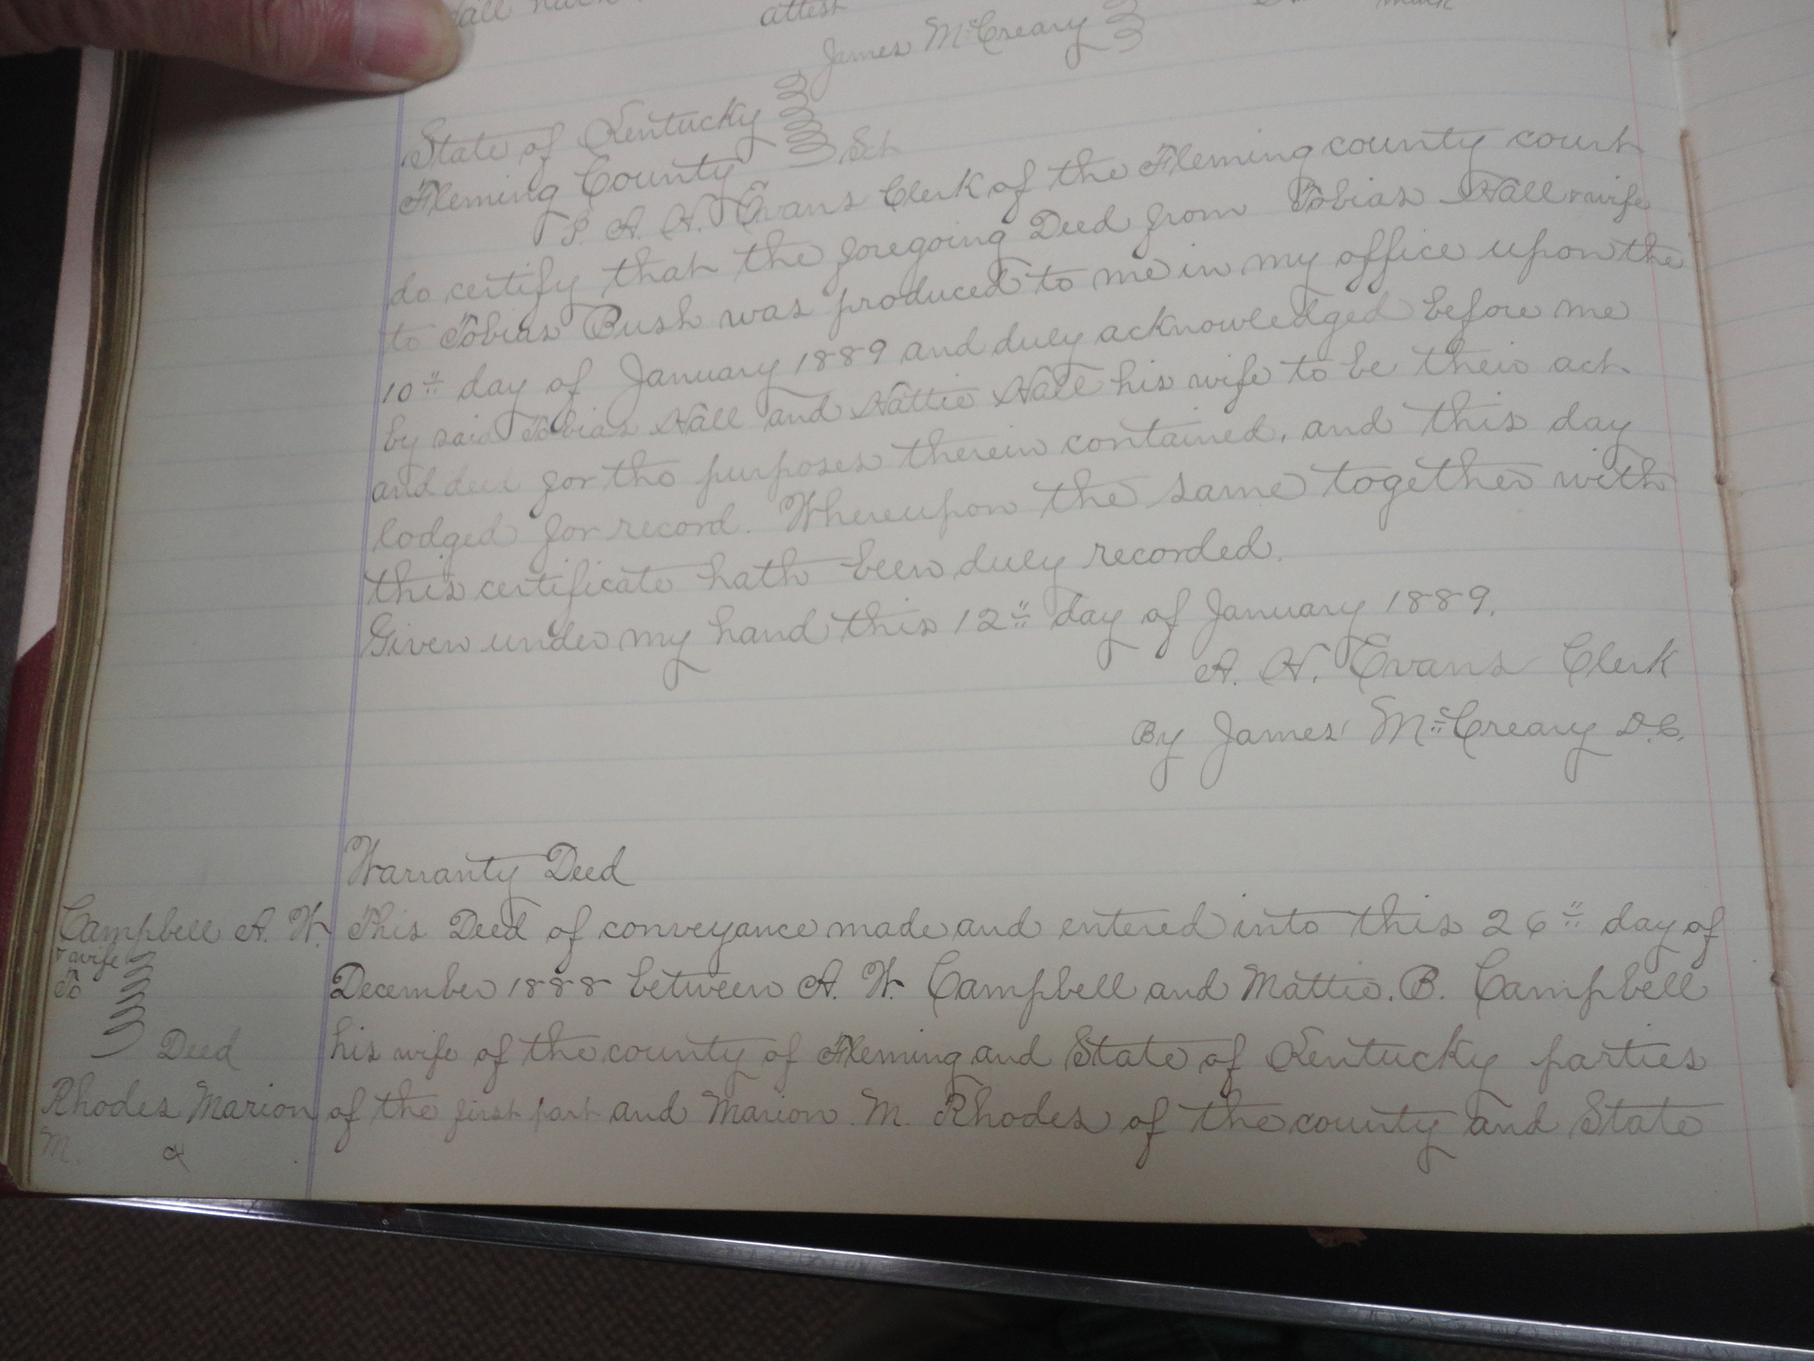 attest mark
James McCreary
State of Kentucky
Fleming County Sct
I. A. H. Evans Clerk of the Fleming county court
do certify that the foregoing Deed from Tobias Hall & wife
to Tobias Bush was produced to me in my office upon the
10th day of January 1889 and duly acknowledged before me
by said Tobias Hall and Hattie Hall his wife to be their act
and deed for the purposes therein contained, and this day
lodged for record. Whereupon the same together with
this certificate hath been duly recorded.
Given under my hand this 12th day of January 1889.
A. H. Evans Clerk
By James McCreary D.C.
Warranty Deed
Campbell A. W. This Deed of conveyance made and entered into this 26th day of
& wife
To
December 1888 between A. W. Campbell and Mattie. B. Campbell
Deed his wife of the county of Fleming and State of Kentucky parties
Rhodes Marion of the first part and Marion M. Rhodes of the county and State
M. &